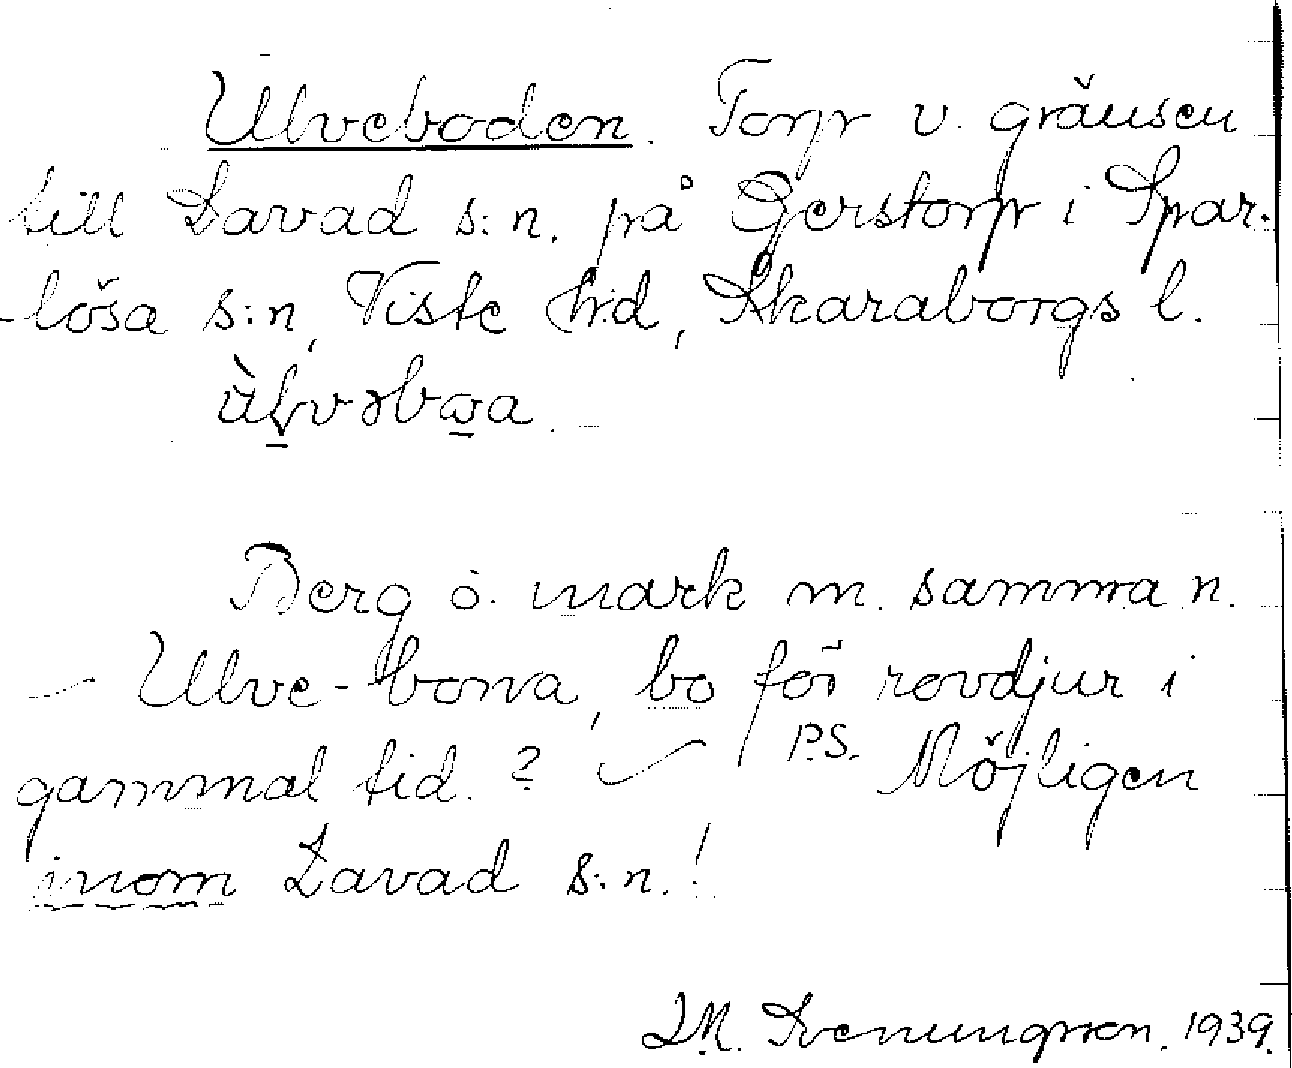 Ulveboden. Torp v. gränsen
till Lavad s:n. på Gerstorp i Spar-
-lösa s:n, Viste hd, Skaraborgs l.
Berg o. mark m. samma n.
- Ulve-bona, bo för rovdjur i
gammal tid. ? / P.S. Möjligen
inom Lavad s:n.!
1939.